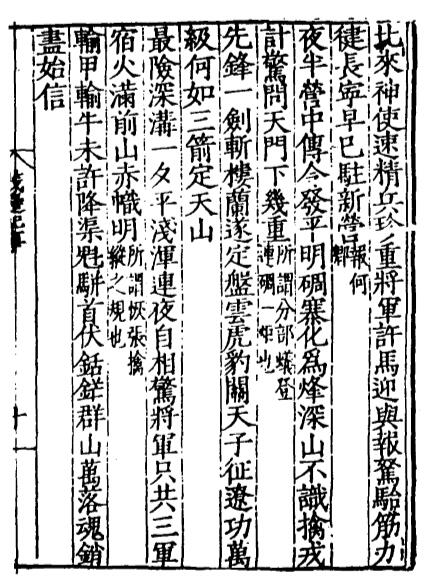 比來神使速精兵珍重將軍許馬迎與報駑駘筋力
徤長寧早已駐新營報何鄰
夜半營中傳令發平明碉寨化爲烽深山不識擒戎
計驚問天門下幾重所謂分部蟻登連碉一炬也
先鋒一劍斬樓蘭遂定盤雲虎豹關天子征遼功萬
級何如三箭定天山
最險深溝一夕平淺渾連夜自相驚將軍只共三軍
宿火滿前山赤幟明所謂恢張擒縱之規也
輸甲輸牛未許降渠魁駢首伏銛鋩群山萬落魂銷
盡始信
十一